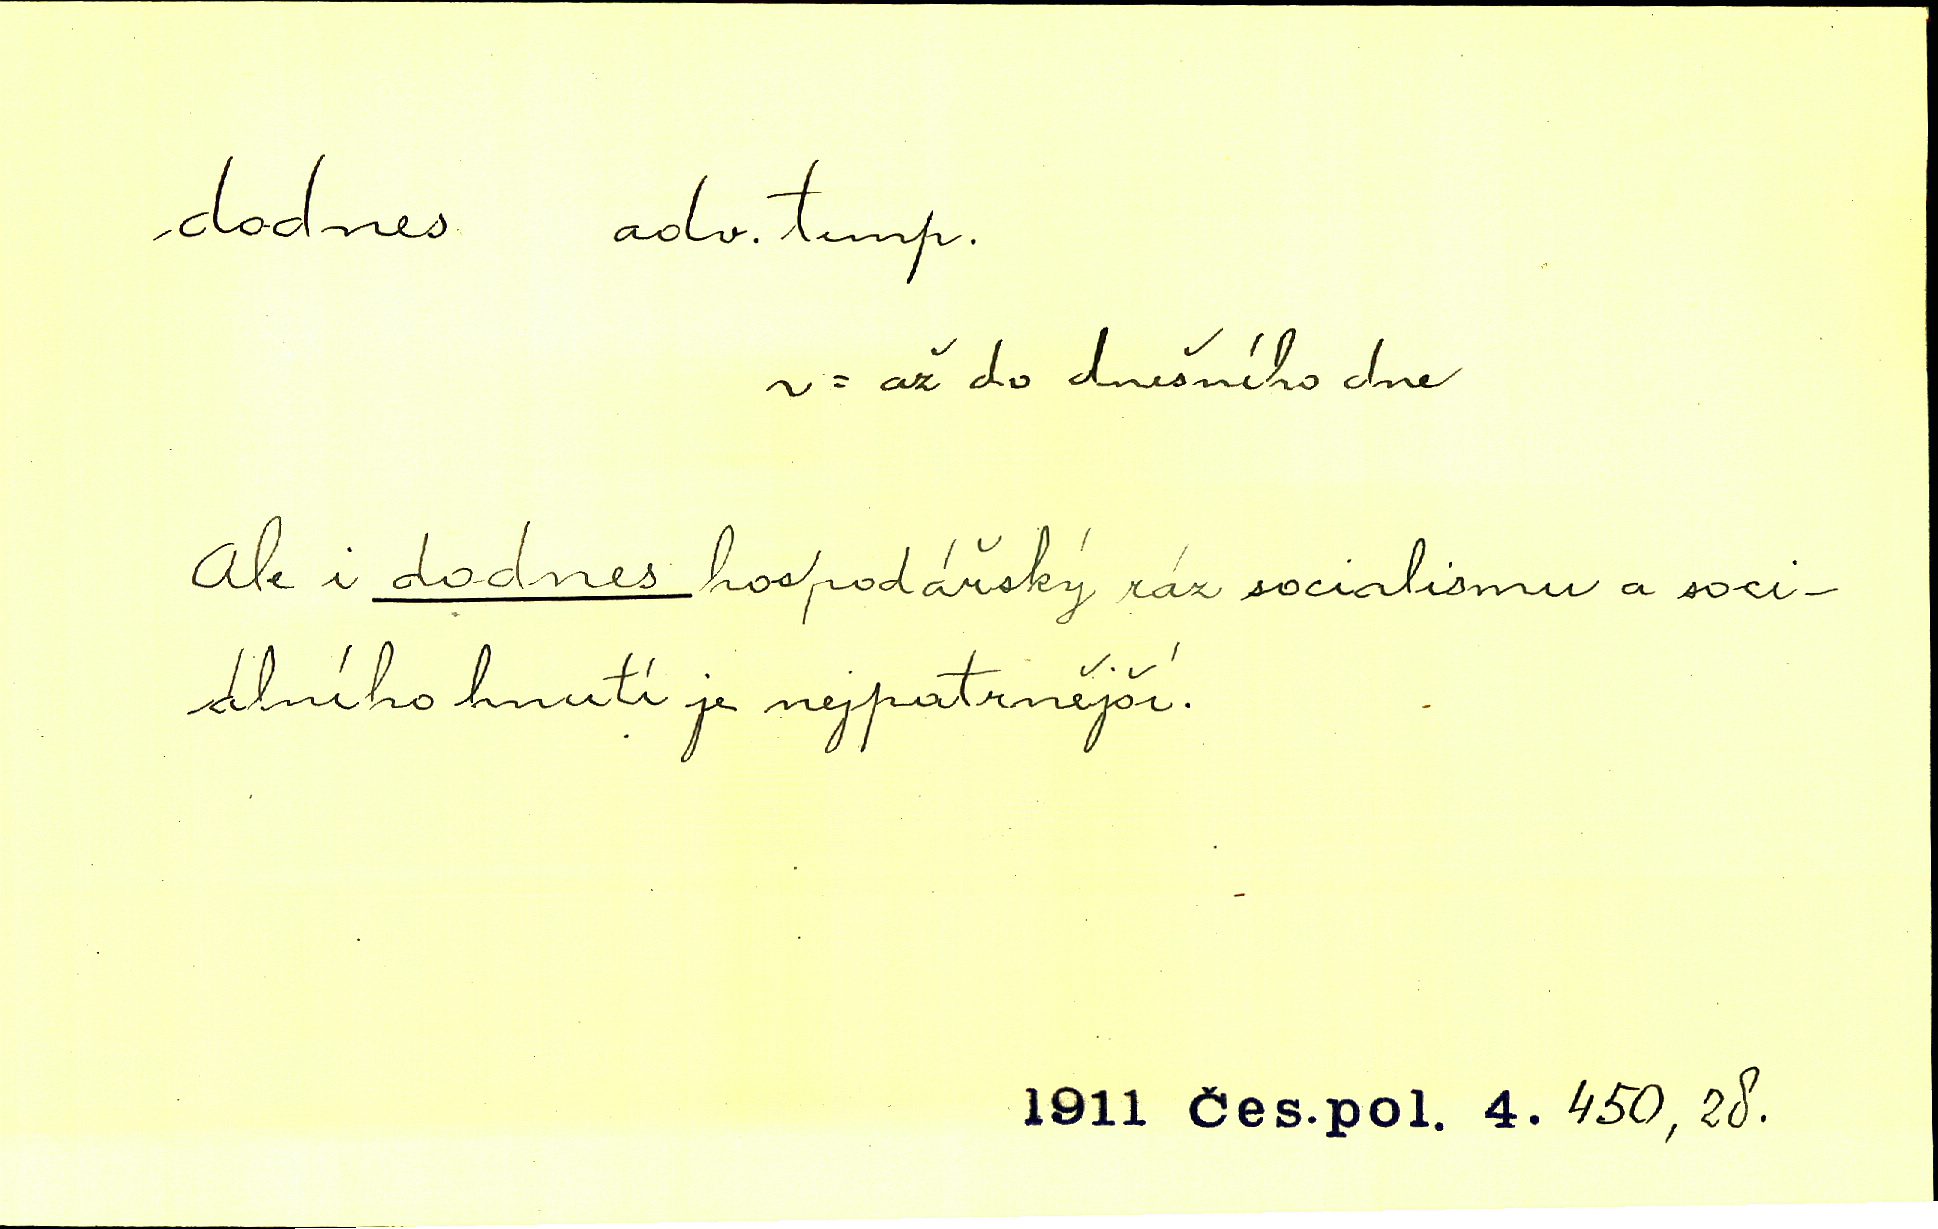 dodnes adv. temp.
v = až do dnešního dne
Ale i dodnes hospodářský ráz socialismu a soci-
álního hnutí je nejpatrnější.
1911 Čes.pol. 4. 450, 28.